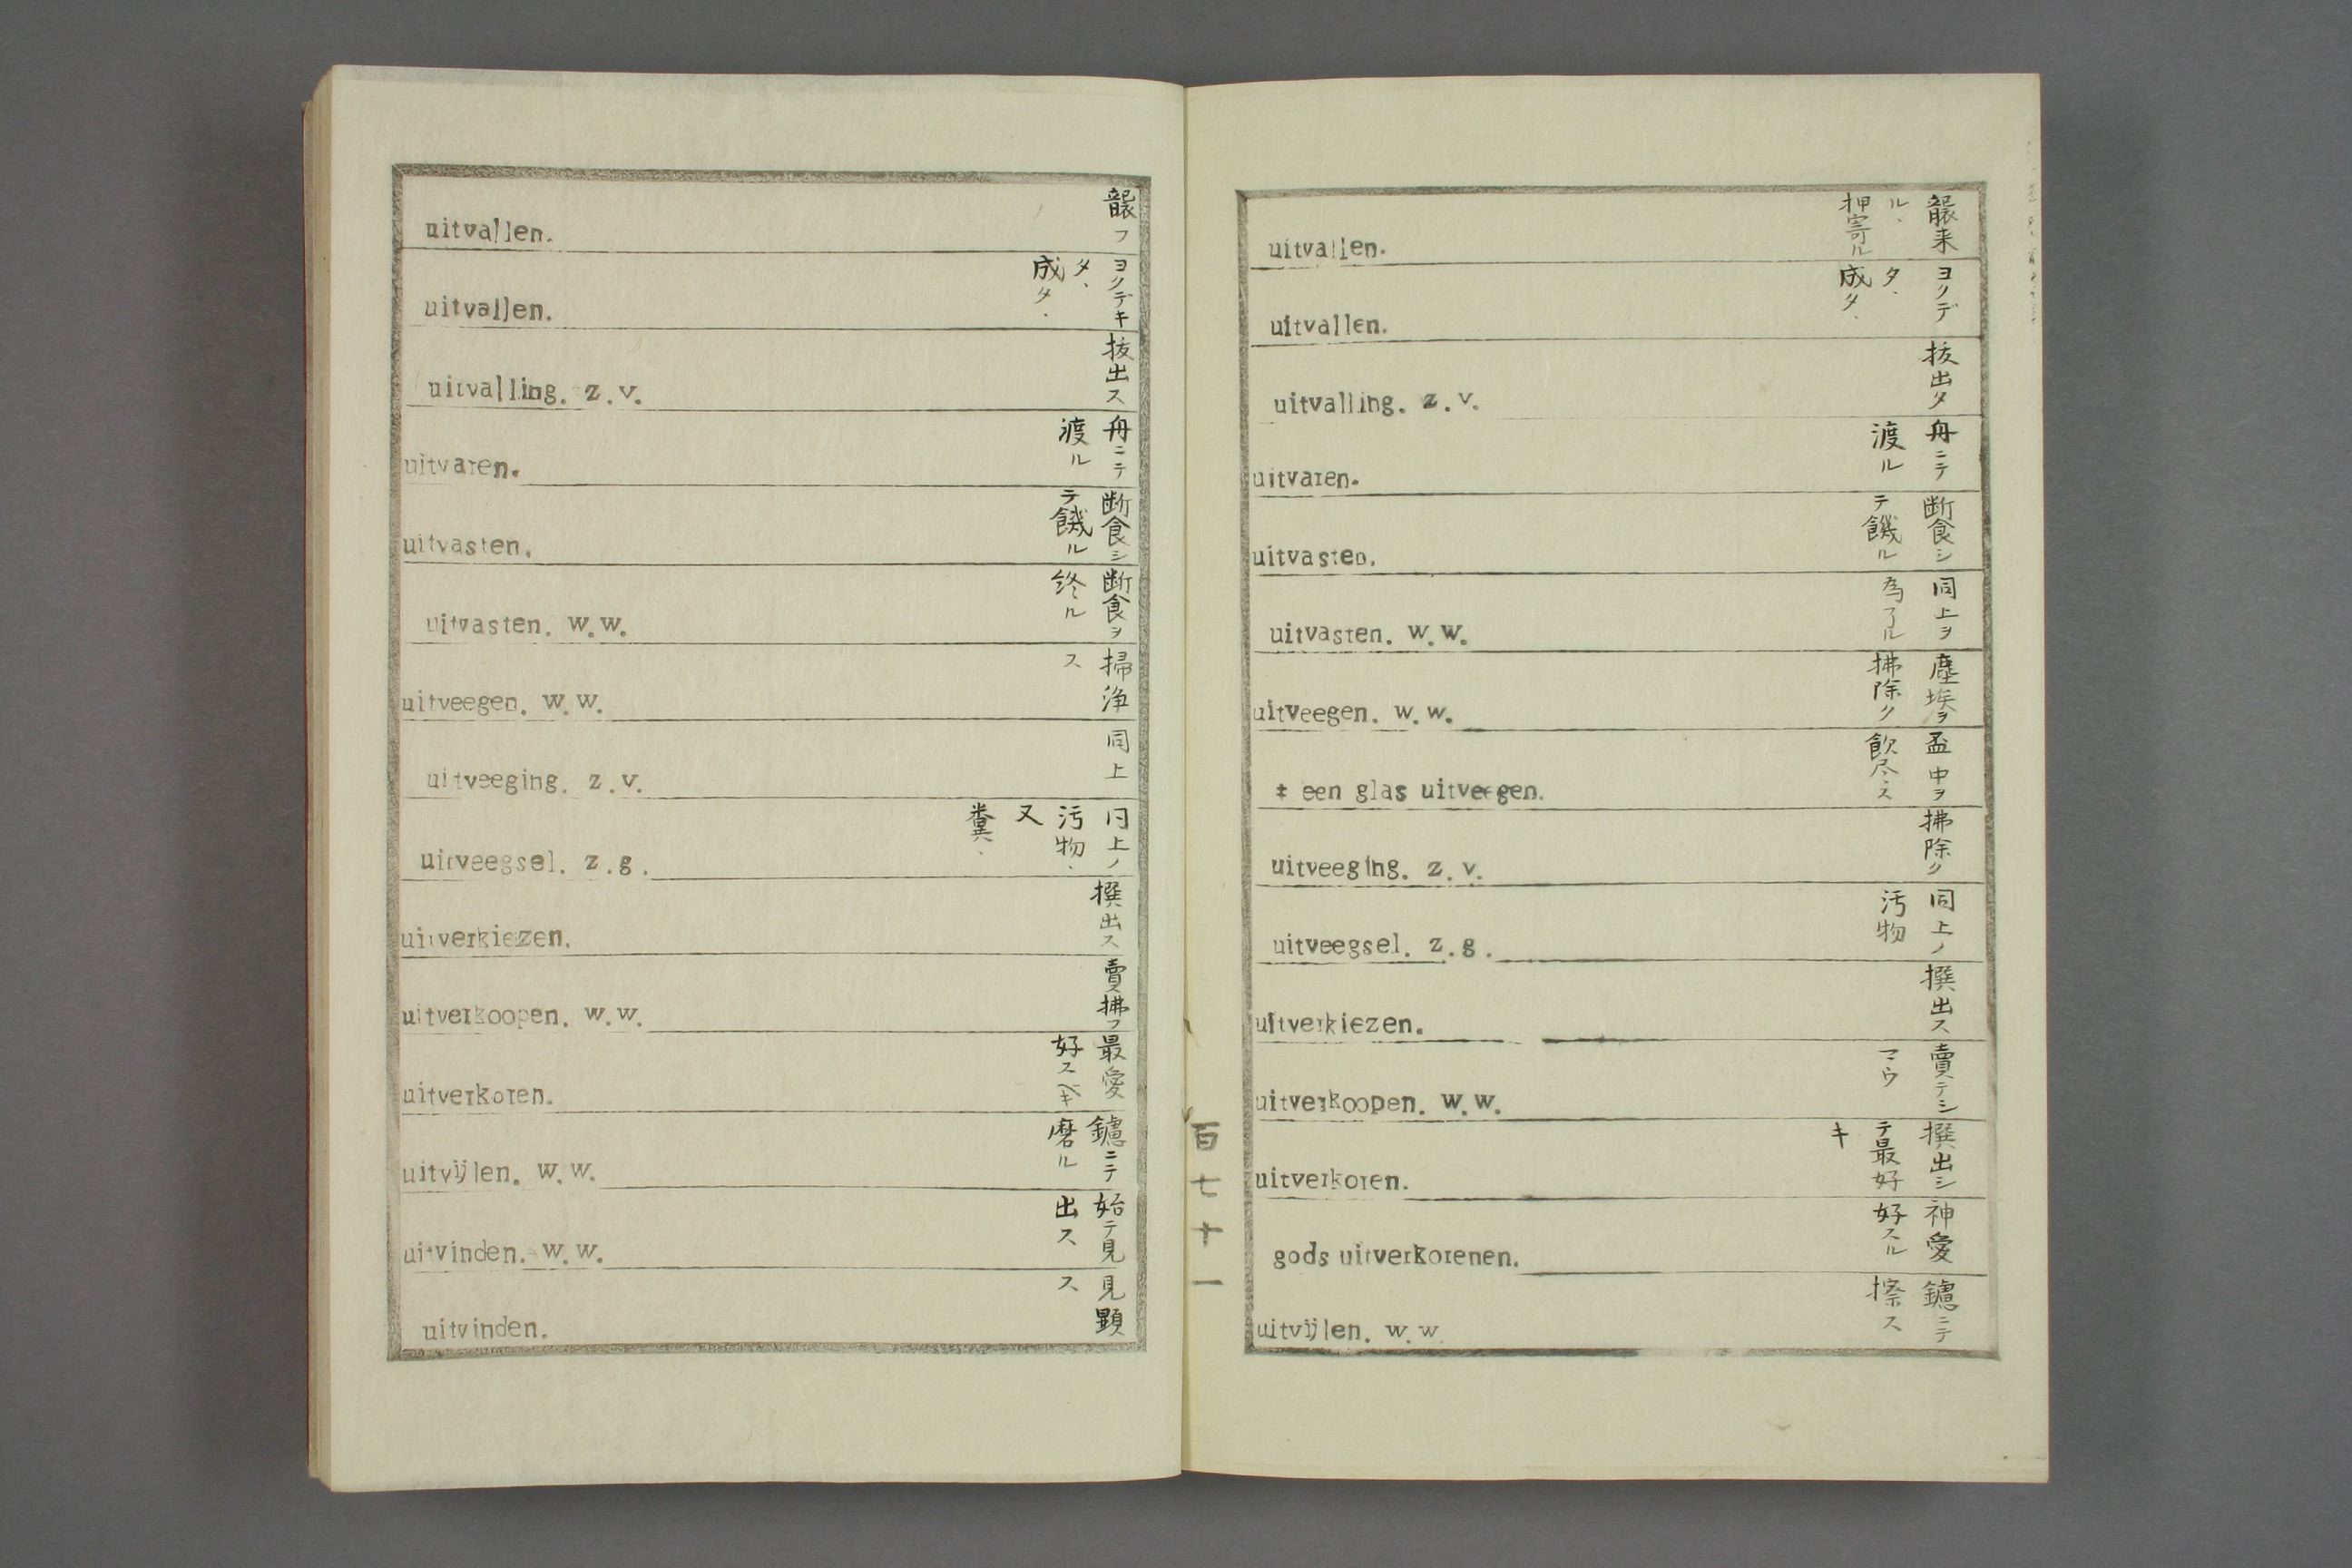 uitvallen. 襲フ
uitvallen. ヨクデキタ、成タ.
uitvalling. z.v. 抜出ス
uitvaren. 舟ニテ渡ル
uitvasten. 断食シテ饑ル
uitvasten. w.w. 断食ヲ終ル
uitveegen. w.w. 掃浄ス
uitveeging. z.v. 同上
uitveegsel. z.g. 同上ノ汚物.又糞.
uitverkiezen. 撰出ス
uitverkoopen. w.w. 賣拂フ
uitverkoren. 最愛好スベキ
uitvijlen. w.w. 鑢ニテ磨ル
uitvinden. w.w. 始テ見出ス
uitvinden. 見顕ス
百七十一
uitvallen. 襲来ル、押寄ル
uitvallen. ヨクデタ.成タ.
uitvalling. z.v. 抜出タ
uitvaren. 舟ニテ渡ル
uitvasten. 断食シテ饑ル
uitvasten. w.w. 同上ヲ為了ル
uitveegen. w.w. 塵埃ヲ拂除ク
‡ een glas uitveegen. 盃中ヲ飲尽ス
uitveeging. z.v. 拂除ク
uitveegsel. z.g. 同上ノ汚物
uitverkiezen. 撰出ス
uitverkoopen. w.w. 賣テシマウ
uitverkoren. 撰出シテ最好キ
gods uitverkorenen. 神愛好スル
uitvijlen. w.w 鑢ニテ擦ス